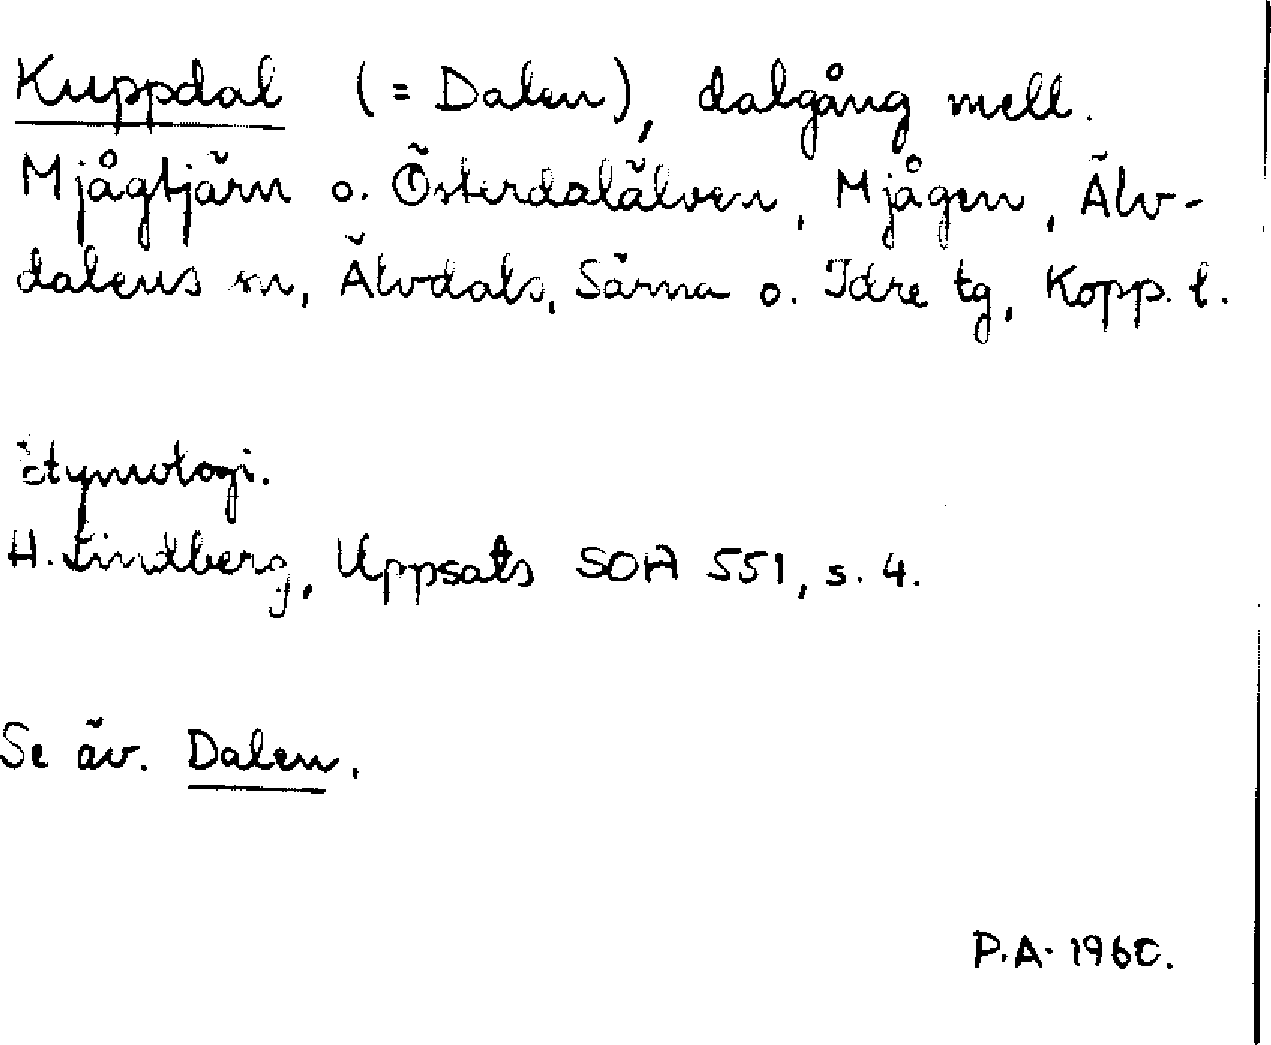 Kuppdal (= Dalen), dalgång mell.
Mjågtjärn o. Österdalälven, Mjågen, Älv-
dalens sn, Älvdals, Särna o. Idre tg, Kopp. l.
Etymologi.
H. Lindberg, Uppsats SOA 551, s. 4.
Se äv. Dalen.
P.A. 1960.